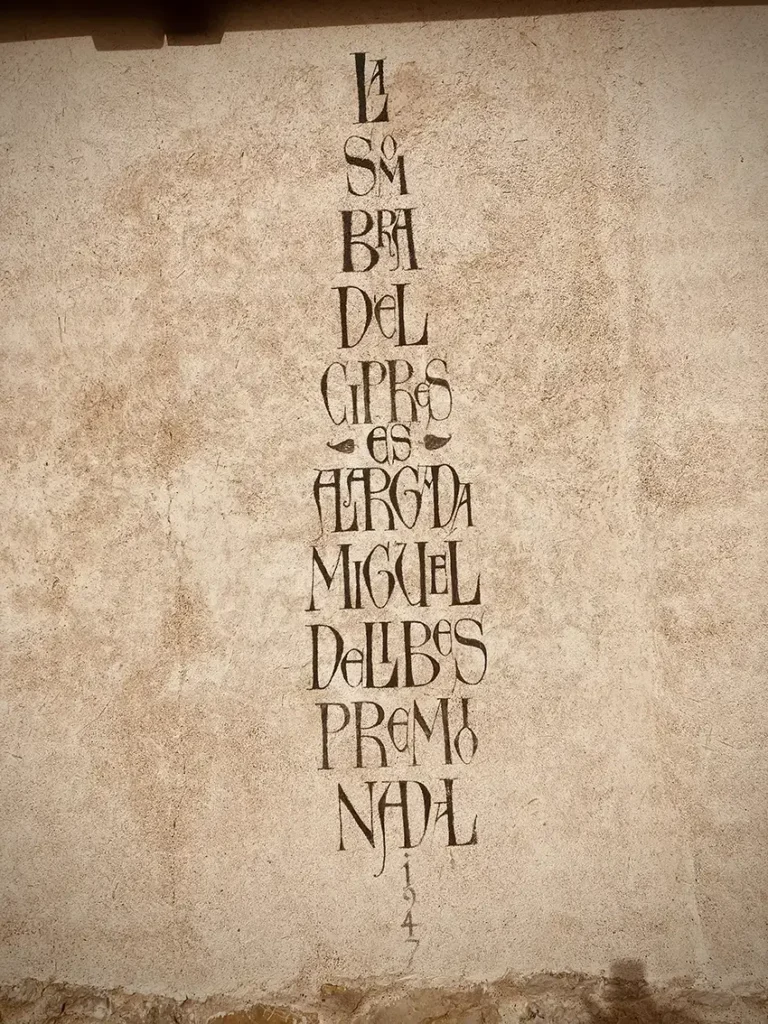 LA
SOM
BRA
DEL
CIPRES
ES
ALARGADA
MIGUEL
DELIBES
PREMIO
NADAL
1
9
4
7